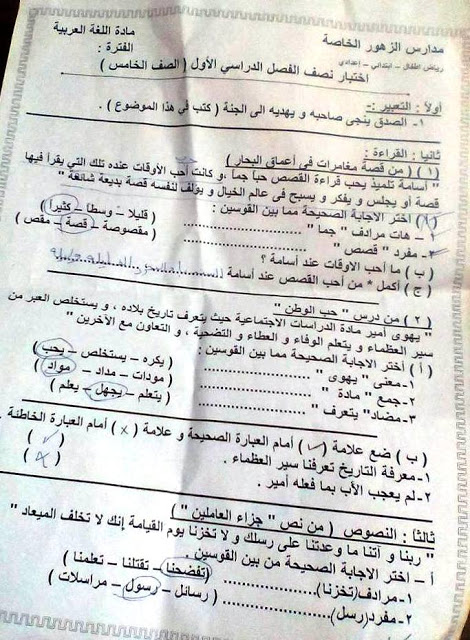 مدارس الزهور الخاصة
مادة اللغة العربية
رياض اطفال – ابتدائي – إعدادي
الفترة :
اختبار نصف الفصل الدراسي الأول ( الصف الخامس )
أولاً : التعبير :-
١- الصدق ينجى صاحبه و يهديه الى الجنة ( كتب فى هذا الموضوع ) .
ثانيا : القراءة :
( ١ ) ( من قصة مغامرات فى أعماق البحار )
" أسامة تلميذ يحب قراءة القصص حبا جما ،و كانت أحب الأوقات عنده تلك التي يقرأ فيها
قصة أو يجلس و يفكر و يسبح فى عالم الخيال و يؤلف لنفسه قصة بديعة شائقة "
( أ ) اختر الاجابة الصحيحة مما بين القوسين :
١ – هات مرادف " جما " ........ ( قليلا – وسطا – كثيرا )
٢- مفرد " قصص " ........ ( مقصوصة – قصة – مقص )
( ب ) ما أحب الأوقات عند أسامة ؟
( ج ) أكمل * من أحب القصص عند أسامة
( ٢ ) من درس " حب الوطن "
" يهوى أمير مادة الدراسات الاجتماعية حيث يتعرف تاريخ بلاده ، و يستخلص العبر من
سير العظماء و يتعلم الوفاء و العطاء و التضحية ، و التعاون مع الآخرين "
( أ ) أختر الاجابة الصحيحة مما بين القوسين :
١-معنى " يهوى " ........ ( يكره – يستخلص – يحب )
٢-جمع " مادة " ........ ( مودات – مداد – مواد )
٣-مضاد" يتعرف " ........ ( يتعلم – يجهل – يعلم )
( ب ) ضع علامة ( ✓ ) أمام العبارة الصحيحة و علامة ( × ) أمام العبارة الخاطئة .
١-معرفة التاريخ تعرفنا سير العظماء . ( ✓ )
٢-لم يعجب الأب بما فعله أمير . ( × )
ثالثاً : النصوص ( من نص " جزاء العاملين " )
" ربنا و آتنا ما وعدتنا على رسلك و لا تخزنا يوم القيامة إنك لا تخلف الميعاد "
أ – اختر الاجابة الصحيحة من بين القوسين .
١-مرادف(تخزنا)........ ( تفضحنا – تقتلنا – تعلمنا )
٢-مفرد(رسل)........ ( رسائل – رسول – مراسلات )